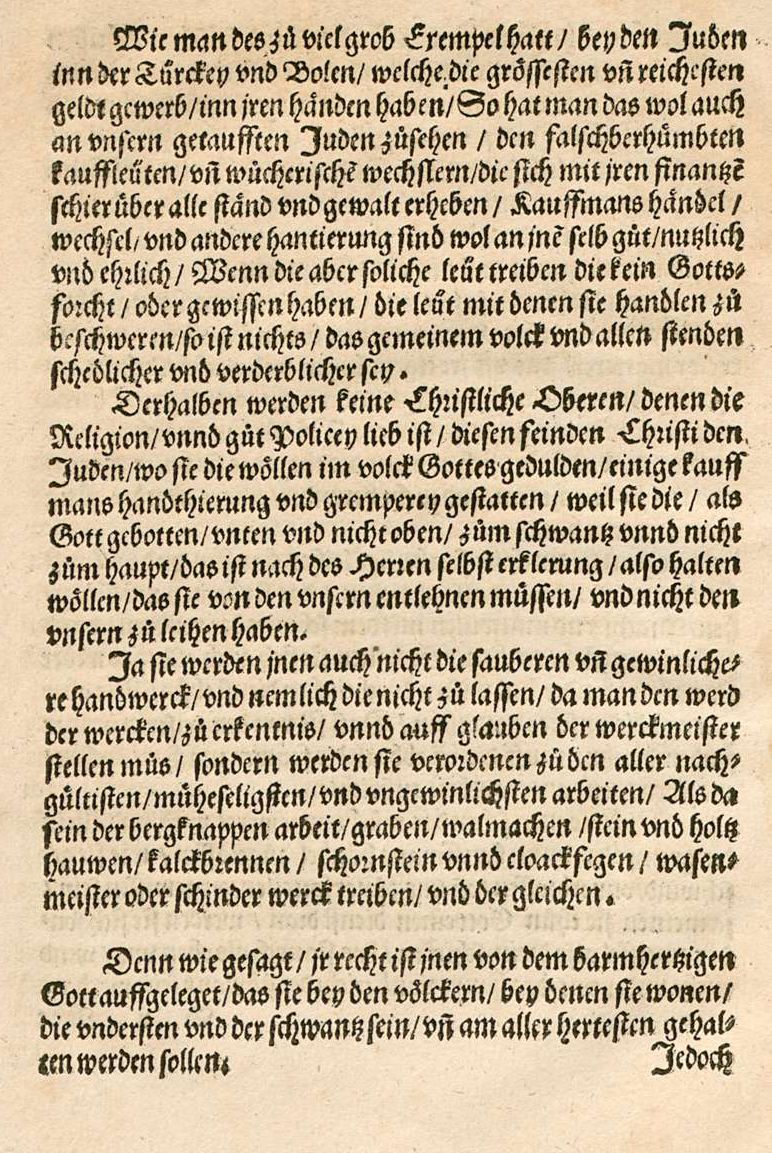 Wie man des zů viel grob Exempel hatt / bey den Juden
inn der Türckey vnd Bolen / welche die grössesten vñ reichesten
geldt gewerb / inn jren händen haben / So hat man das wol auch
an vnsern getaufften Juden zůsehen / den falschberhümbten
kauffleüten / vñ wůcherischē wechslern / die sich mit jren finantzē
schier über alle ständ vnd gewalt erheben / Kauffmans händel /
wechsel / vnd andere hantierung sind wol an jnē selb gůt / nutzlich
vnd ehrlich / Wenn die aber soliche leüt treiben die kein Gotts⸗
forcht / oder gewissen haben / die leüt mit denen sie handlen zů
beschweren / so ist nichts / das gemeinem volck vnd allen stenden
schedlicher vnd verderblicher sey.
Derhalben werden keine Christliche Oberen / denen die
Religion / vnnd gůt Policey lieb ist / diesen feinden Christi den
Juden / wo sie die wöllen im volck Gottes gedulden / einige kauff
mans handthierung vnd gremperey gestatten / weil sie die / als
Gott gebotten / vnten vnd nicht oben / zům schwantz vnnd nicht
zům haupt / das ist nach des Herren selbst erklerung / also halten
wöllen / das sie von den vnsern entlehnen müssen / vnd nicht den
vnsern zů leihen haben.
Ja sie werden jnen auch nicht die sauberen vñ gewinliche⸗
re handwerck / vnd nemlich die nicht zů lassen / da man den werd
der wercken / zů erkentnis / vnnd auff glauben der werckmeister
stellen můs / sondern werden sie verordenen zů den aller nach⸗
gültisten / müheseligsten / vnd vngewinlichsten arbeiten / Als da
sein der bergknappen arbeit / graben / walmachen / stein vnd holtz
hauwen / kalckbrennen / schornstein vnnd cloackfegen / wasen⸗
meister oder schinder werck treiben / vnd der gleichen.
Denn wie gesagt / jr recht ist jnen von dem barmhertzigen
Gott auffgeleget / das sie bey den völckern / bey denen sie wonen /
die vndersten vnd der schwantz sein / vñ am aller hertesten gehal⸗
ten werden sollen.
Jedoch